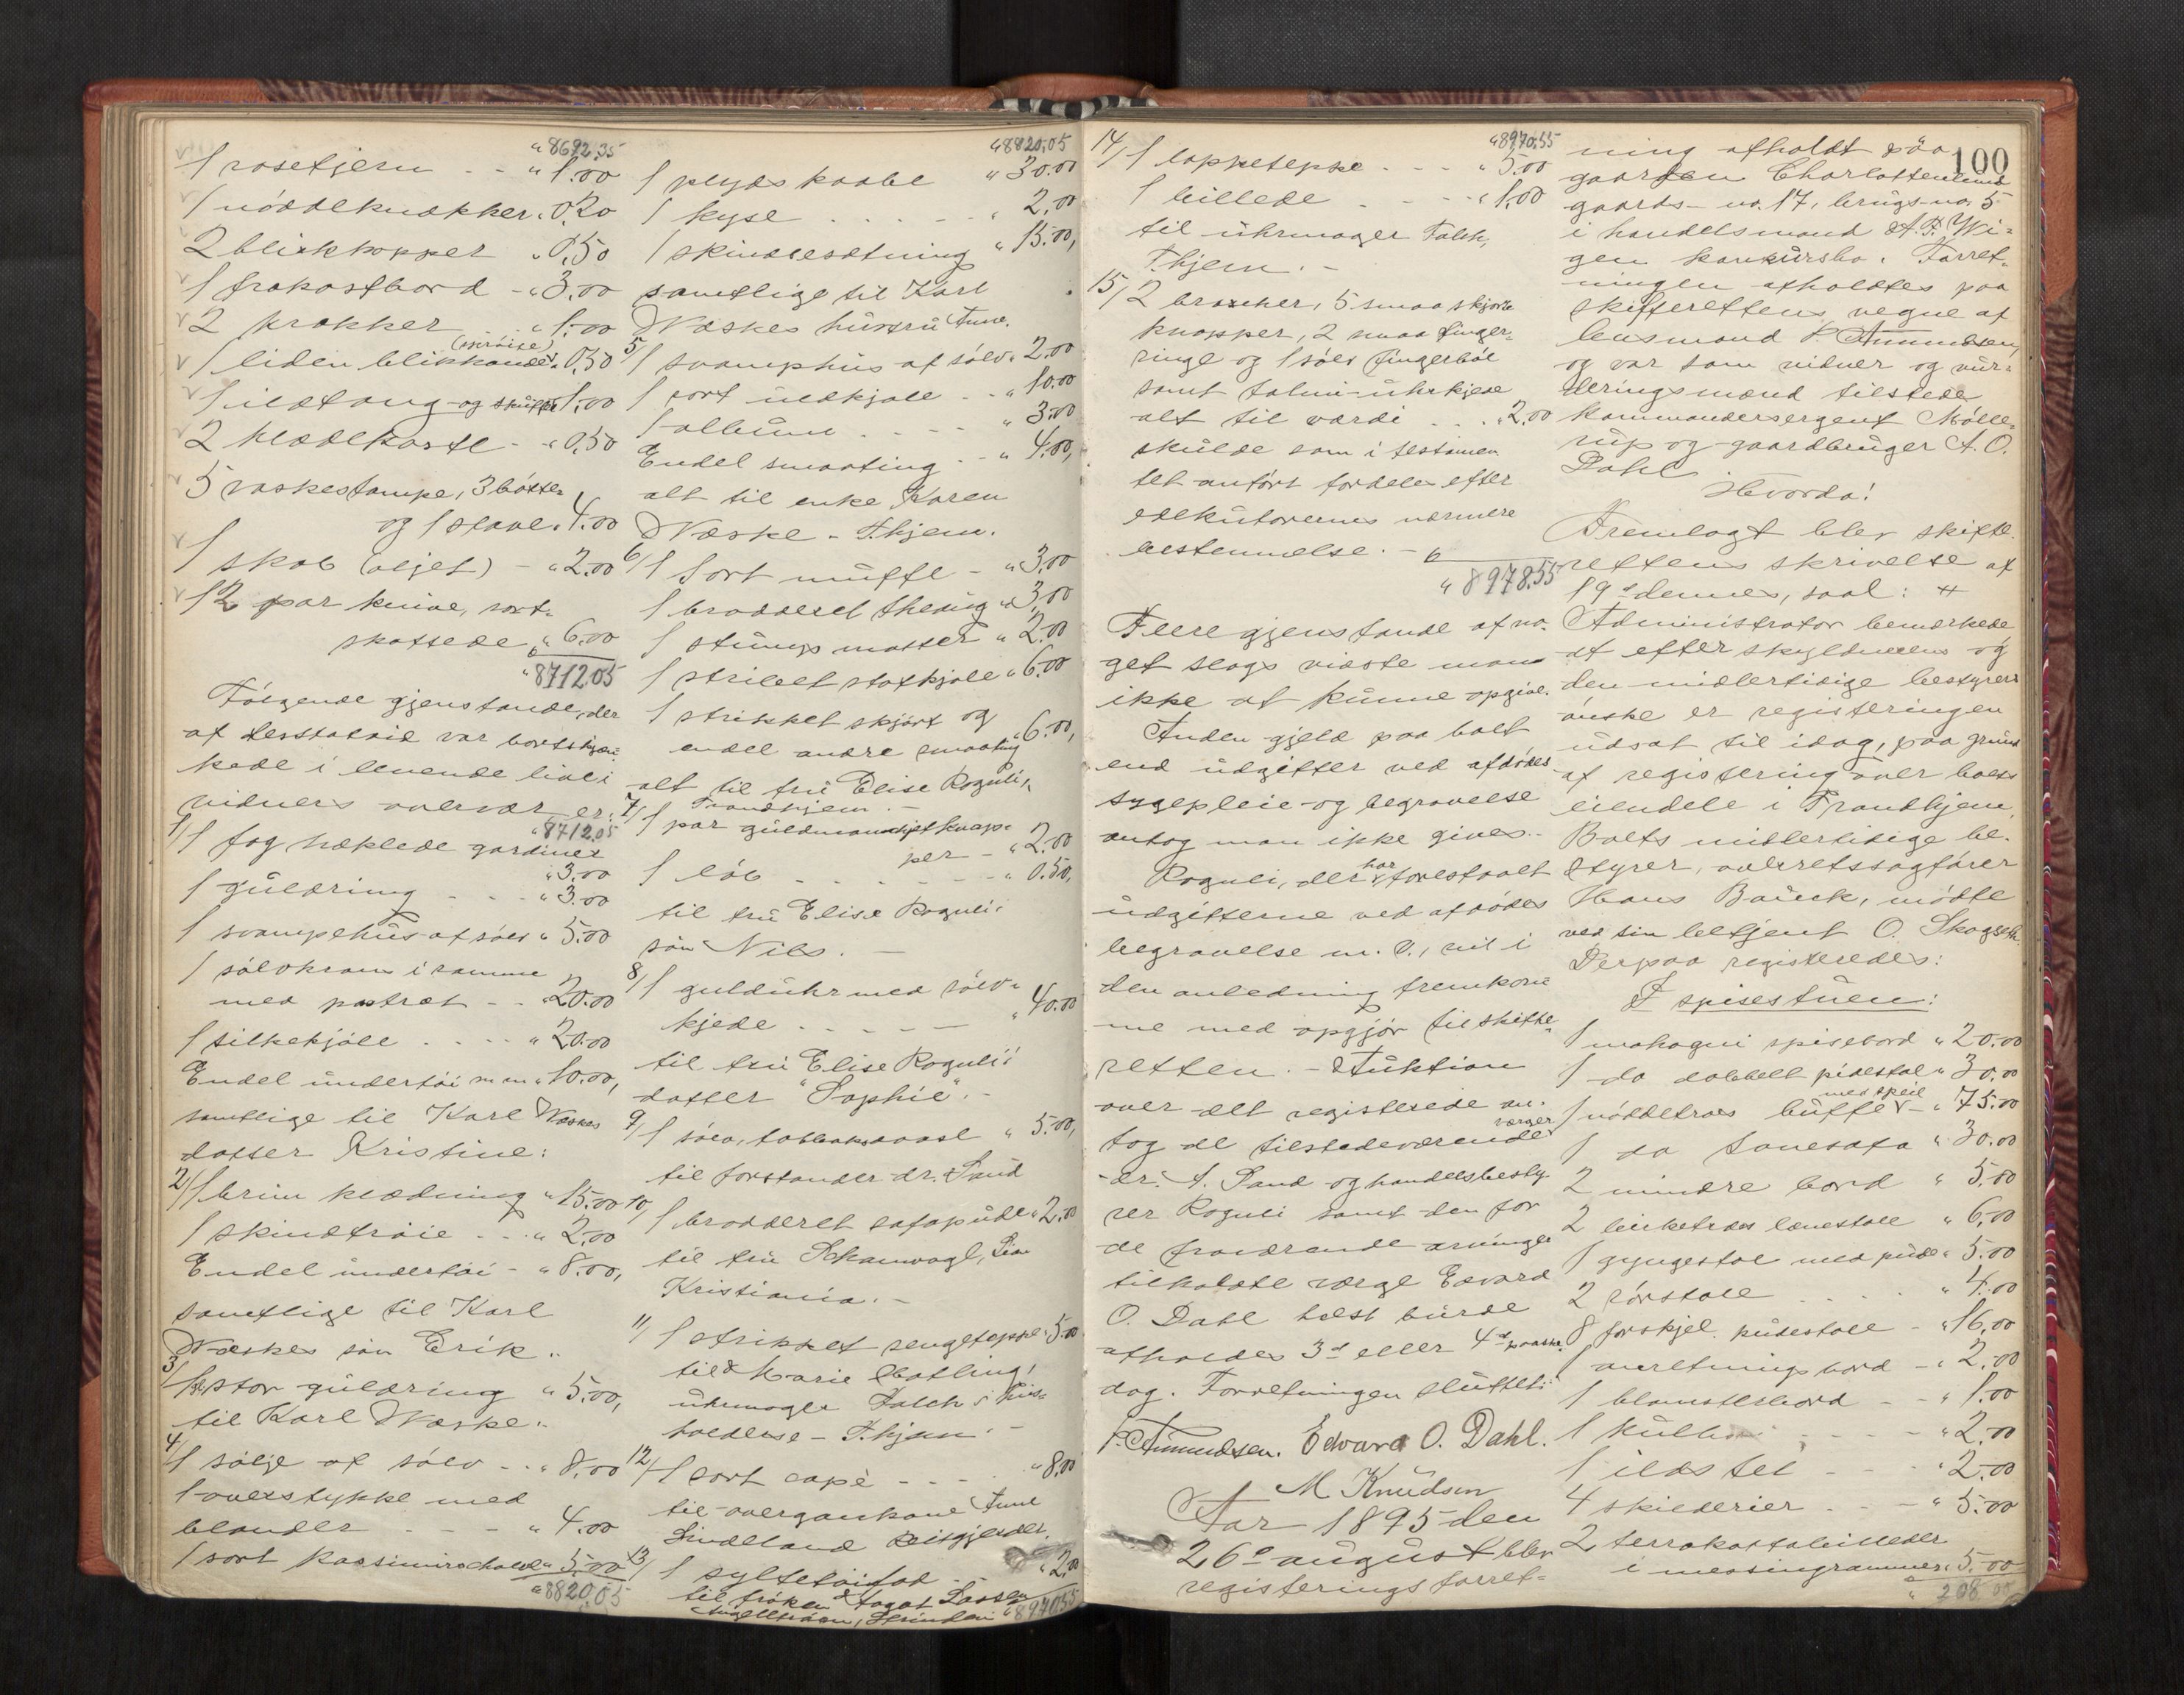 " 8692,35
1 rosetjern - - " 1.00
1 nöddeknækker " 0,20
2 blikkopper " 0,50
1 frokostbord - " 3,00
2 krakker " 1.00
1 liden blikkande " 0,50
1 ildtang og skuffe 1,00
2 klædekoste - " 0,50
5 vaskestampe, 3 bötter
og 1 stave " 4.00
1 skab (oljet) - " 2.00
12 par knive, sort-
skaftede " 6.00
" 8712.05
Fölgende gjenstande, der
af testatrix var bortskjæn-
kede i levende live i
vidners overvær er:
" 8712.05
1/ 1 fag hæklede gardiner
" 3.00
1 guldring - - - " 3.00
1 svampehus af sölv " 5.00
1 sölvkrans i ramme
med portræt - - " 20.00
1 silkekjole . . . . " 20.00
Endel undertöi m m " 10.00,
samtlige til Karl Wæskes
datter Kristine:
2/ 1 brun klædning " 15.00
1 skindtröie . . . " 2.00
Endel undertöi - " 8.00,
samtlige til Karl
Wæskes sön Erik.
3/ 1 stor guldring " 5.00,
til Karl Wæske.
4/ 1 sölje af sölv - - " 8,00
1 overstykke med
blonder - - - " 4.00
1 sort kassimirschavl " 5.00
" 8820.05
" 8820,05
1 plyds kaabe " 30.00
1 kyse . . . . . " 2.00
1 skindbesætning " 15.00,
samtlige til Karl
Wæskes hustru
5/ 1 svamphus af sölv " 2.00
1 sort uldkjole - - " 10.00
1 album - - - - " 3.00
Endel smaating - - " 4.00,
alt til enke Karen
Wæske - Thjem.
6/ 1 sort muffe - " 3,00
1 broderet " 3,00
1 " 2.00
1 stribet stofkjole " 6.00
1 strikket skjört og
endel andre smaating " 6.00,
alt til fru Elise Roguli,
Trondhjem. -
7/ 1 par guldmanchetknap-
per - " 2.00
1 - - - - - " 0.50,
til fru Elise Rogulis
sön Nils. -
8/ 1 gulduhr med sölv-
kjede - - - - - " 40.00
til fru Elise Rogulis
datter "Sophie". -
9/ 1 sölv, tobaksdaase " 5.00,
til forstander dr. Sand
10/ 1 broderet sofapude " 2.00
til fru
Kristiania. -
11/ 1 strikket sengeteppe " 5.00
til Marie
uhrmager Falch's hus-
holderske - Thjem. -
12/ 1 sort cape - - - " 8,00
til
Lindland
13/ 1 syltetöifad - " 2,00
til fröken Dagat Lossen
" 8970.55
" 8970.55
14/ 1 loppeteppe - - - " 5.00
1 billede - - - - " 1,00
til uhrmager Falch,
Thjem. -
15/ 2 brocher, 5 smaa skjorte
knapper, 2 smaa finger-
ringe og 1 sölv fingerböl
samt talmi-uhrkjede
alt til værdi . . . " 2.00
skulde som i testamen
tet anfört fordeles efter
exekutorernes nærmere
bestemmelse. -
" 8978.55
Flere gjenstande af no-
get slags vidste man
ikke at kunne opgive.
Anden gjeld paa boet
end udgifter ved afdödes
sygepleie og begravelse
antog man ikke gives. -
Roguli, der har forestaaet
udgifterne ved afdödes
begravelse m. v., vil i
den anledning fremkom-
me med opgjör til skifte-
retten. - Auktion
over det registerede an-
tog de tilstedeværende værger
dr. A. Sand og handelsbesty-
rer Roguli samt den for
de fraværende arvinger
tilkaldte værge Edvard
O. Dahl helst burde
afholdes 3d eller 4d paaske
dag. Forretningen sluttet:
P. Amundsen. Edvard O. Dahl.
M Knudsen
Aar 1895 den
26d august blev
registerings forret-
ning afholdt paa
100
gaarden Charlottenlund
gaards- no. 17, brugs-no. 5
i handelsmand A. P. Wi-
gen konkursbo. Forret-
ningen afholdtes paa
skifterettens vegne af
lensmand P. Amundsen,
og var som vidner og vur-
deringsmænd tilstede
kommandersergent Mölle-
rup og gaardbruger A. O.
Dahl.
Hvorda!
Fremlagt blev skifte-
rettens skrivelse af
19d dennes, saal: #
Administrator bemærkede
at efter skyldneren og
den midlertidige bestyrers
önske er registeringen
udsat til idag, paa grund
af registering over boets
eiendele i Trondhjem.
Boets midlertidige be-
styrer, overretssagförer
Hans Bauck, mödte
ved sin betjent O. Skogseth.
Derpaa registeredes:
I spisestuen:
1 mahogni spisebord " 20.00
1 do dobbelt pidestal " 30,00
1 nöddetræs buffet med speil - " 75.00
1 do " 30.00
2 mindre bord " 5.00
2 birketræs lænestole " 6,00
1 gyngestol med pude " 5.00
2 rörstole . . . . " 4.00
8 forskjel. pidestole - " 16,00
1 anretningsbord - " 2.00
1 blomsterbord - - " 1.00
1 - - - - " 2.00
1 ildstel - - - " 2.00
4 skilderier - - - " 5.00
2 terrakottabilleder
i messingrammer " 5.00
" 208.00